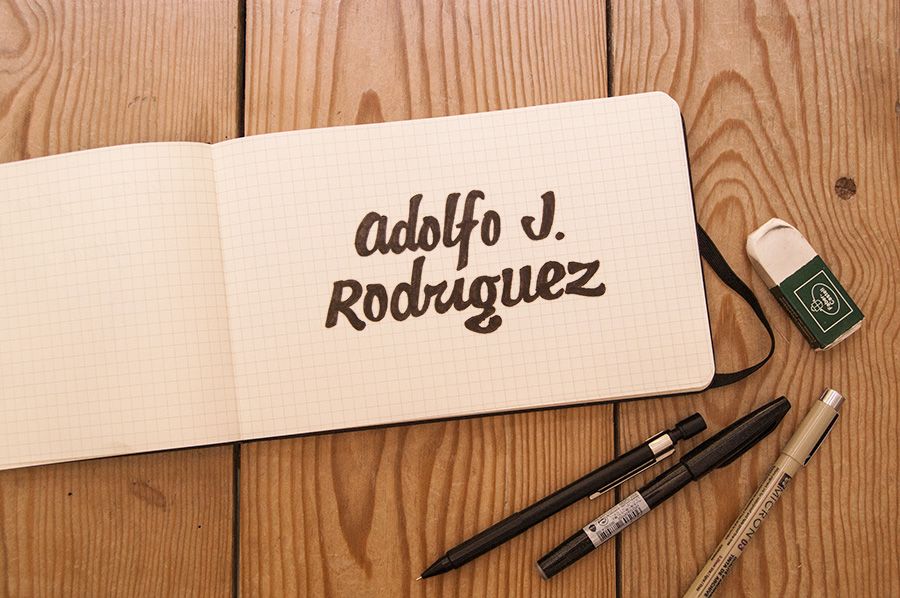 Adolfo J.
Rodriguez
MICRON 03